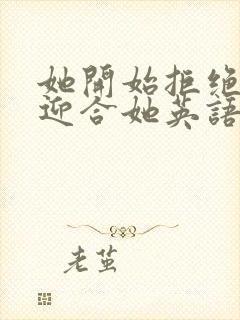 她開始拒絕
迎合她英語
老茧